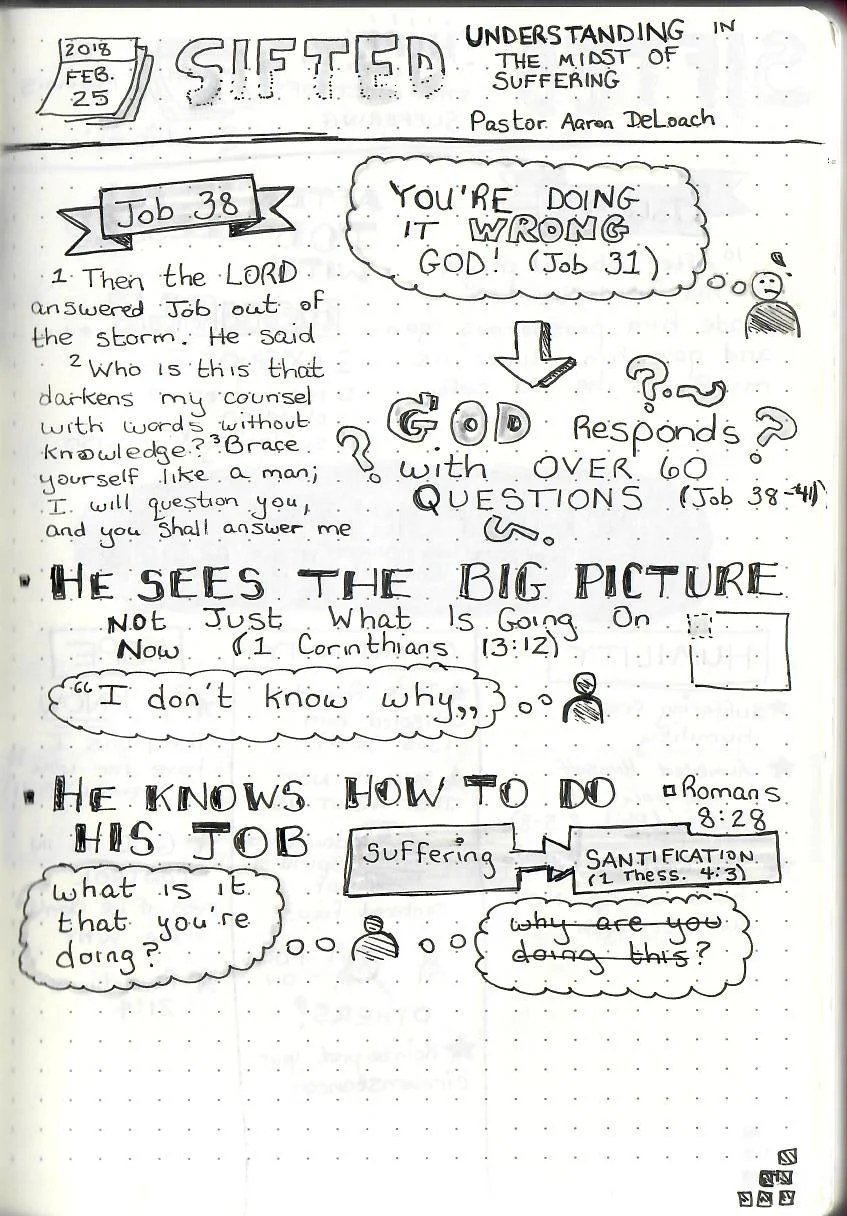 2018
FEB.
25
SIFTED
UNDERSTANDING IN
THE MIDST OF
SUFFERING
Pastor Aaron DeLoach
Job 38
1 Then the LORD
answered Job out of
the storm. He said
2 Who is this that
darkens my counsel
with words without
knowledge? 3 Brace
yourself like a man;
I will question you,
and you shall answer me
YOU'RE DOING
IT WRONG
GOD! (Job 31)
GOD Responds
with OVER 60
QUESTIONS (Job 38-41)
HE SEES THE BIG PICTURE
NOT Just What Is Going On
Now (1 Corinthians 13:12)
"I don't know why"
HE KNOWS HOW TO DO
HIS JOB
Romans
8:28
Suffering
SANTIFICATION
(1 Thess. 4:3)
what is it
that you're
doing?
why are you
doing this?